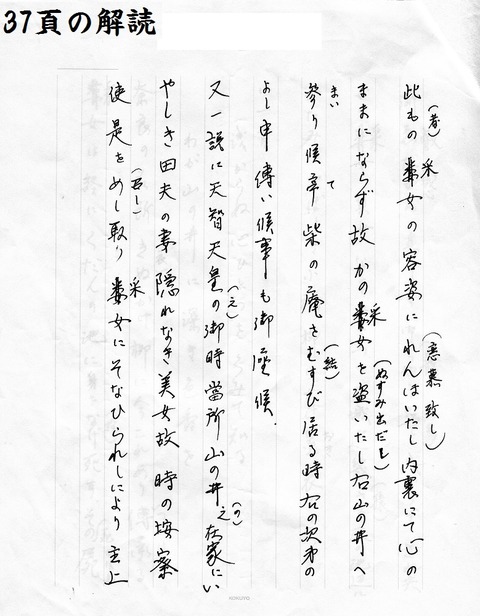 37頁の解読
此もの采女の容姿にれんぼいたし内裏にて心の
(者)
(恋慕致し)
ままにならず故かの采女を盗いたし右山の井へ
(ぬすみ出だし)
参り候て柴の庵をむすび居る時右の次第の
まい
(結)
よし申傳い候事も御座候.
又一説に天智天皇の御時當所山の井之在家にい
(え)
(の)
やしき田夫の妻隠れなき美女故 時の按察
使是をめし取り采女にそなひられしにより 主上
(召し)
KOKUYO